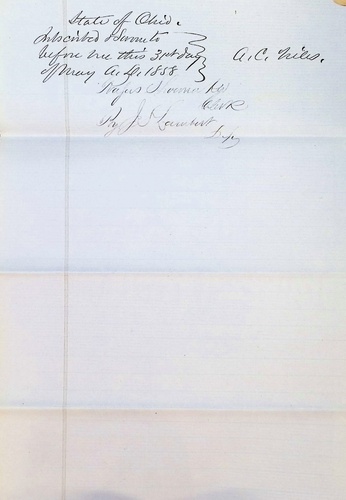 State of Ohio.
Subscribed & Sworn to
before me this 31st day
of May A.D. 1858
A. C. Niles.
Clerk
By J. S. Lambert
Dep